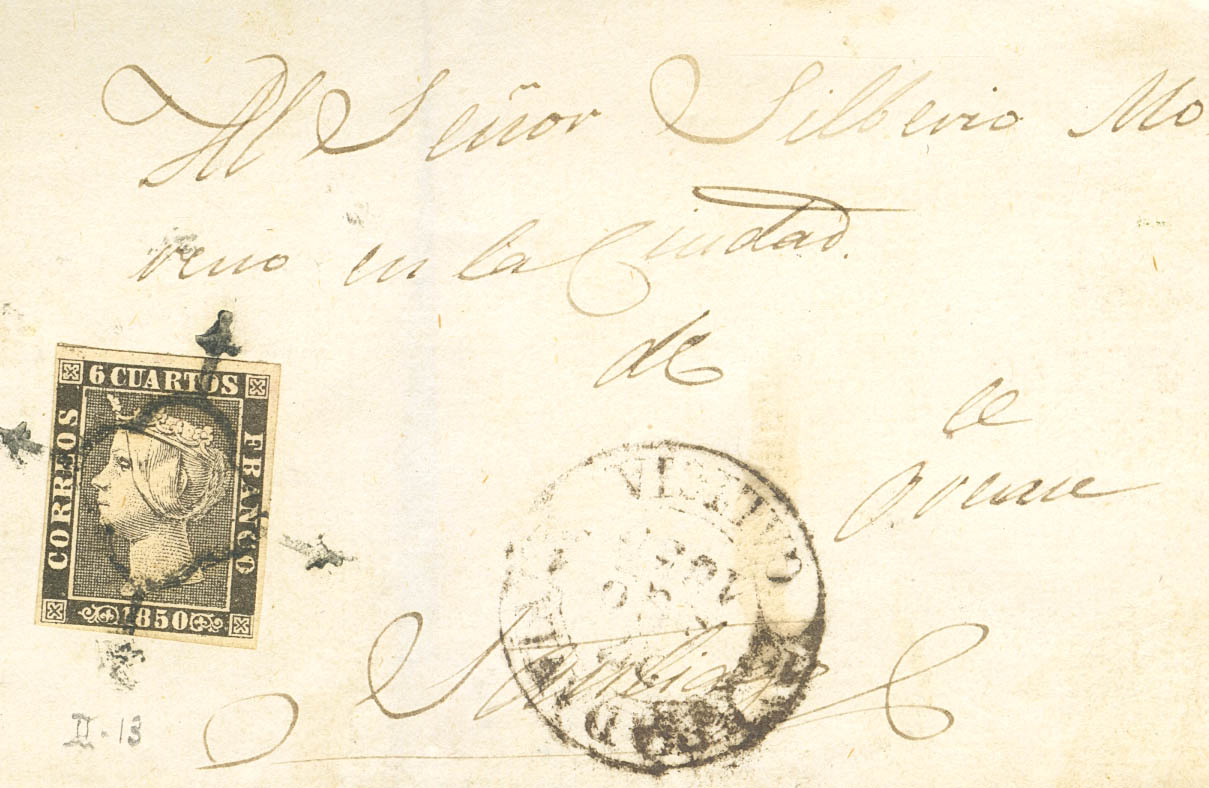 Al Señor Silberio Mo-
reno en la Ciudad.
de
Santiago
6 CUARTOS
CORREOS
FRANCO
1850
II-13